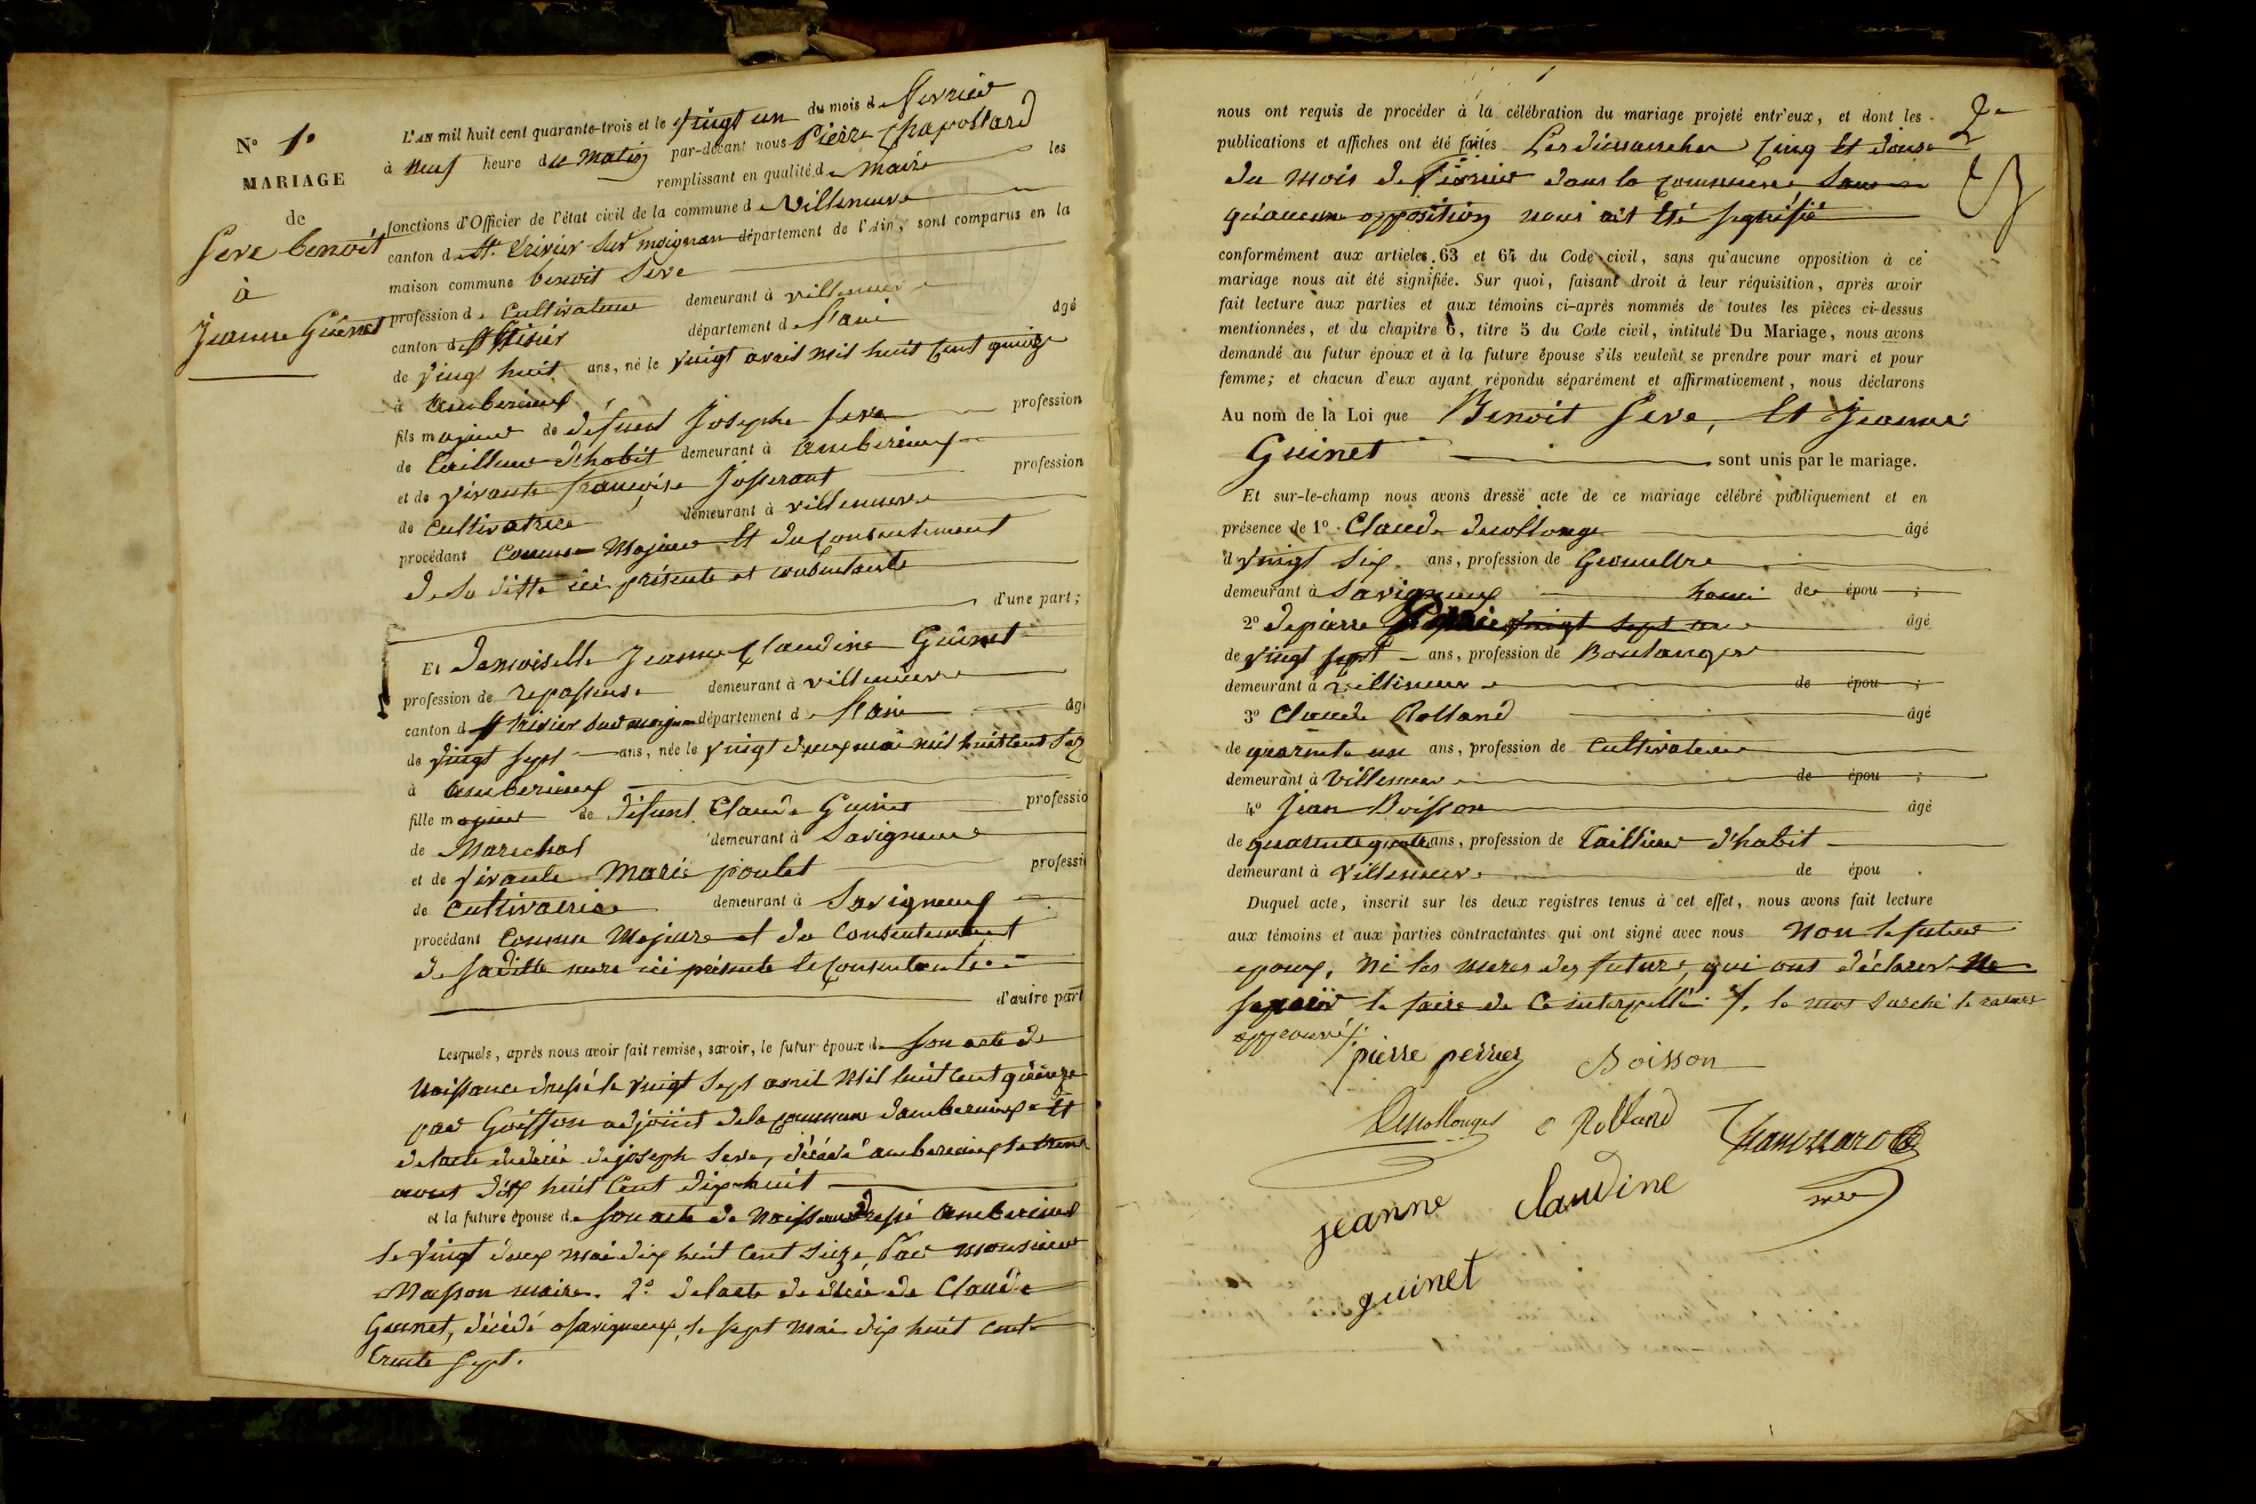 N° 1.
MARIAGE
de
Seve benoit
à
Jeanne Guinet
L'AN mil huit cent quarante-trois et le vingt un du mois de fevrier
à neuf heure du matin par-devant nous Pierre Chapolland
remplissant en qualité de maire les
fonctions d'Officier de l'état civil de la commune de villeneuve
canton de St. trivier sur moignan département de l'Ain, sont comparus en la
maison commune benoit Seve
profession de cultivateur demeurant à villeneuve
canton de St trivier département de l'ain âgé
de vingt huit ans, né le vingt avril mil huit cent quinze
à amberieux
fils majeur de défunt Joseph Seve profession
de tailleur d'habit demeurant à amberieux
et de vivante françoise Josserant profession
de cultivatrice demeurant à villeneuve
procédant comme majeur et du consentement
de sa ditte ici présente et consentante
d'une part;
Et demoiselle Jeanne Claudine Guinet
profession de repasseuse demeurant à villeneuve
canton de St trivier sur moignan département de l'ain âg
de vingt sept ans, née le vingt deux mai mil huit cent seiz
à amberieux
fille majeur de défunt Claude Guinet professio
de Marechal demeurant à Savigneux
et de vivante Marie poulet professi
de cultivatrice demeurant à Savigneux
procédant comme majeure et du consentement
de saditte mere ici présente le consentante
d'autre part
Lesquels, après nous avoir fait remise, savoir, le futur époux de son acte de
naissance dressé le vingt sept avril mil huit cent quinze
par Goiffon adjoint de la commune d'amberieux et
de lacte de décè de joseph Seve, décédé amberieux le trente
aout dix huit cent dix huit
et la future épouse de son acte de naissance dressé amberieux
le vingt deux mai dix huit cent seize, par monsieur
Masson maire. 2° de lacte de décè de Claude
Guinet, décédé a savigneux, le sept mai dix huit cent
trente sept.
2e
nous ont requis de procéder à la célébration du mariage projeté entr'eux, et dont les
publications et affiches ont été faites Les dimanches cinq et douze
du mois de février dans la commune, sans
qu'aucune opposition nous ait été signifié
conformément aux articles 63 et 64 du Code civil, sans qu'aucune opposition à ce
mariage nous ait été signifiée. Sur quoi, faisant droit à leur réquisition, après avoir
fait lecture aux parties et aux témoins ci-après nommés de toutes les pièces ci-dessus
mentionnées, et du chapitre 6, titre 5 du Code civil, intitulé Du Mariage, nous avons
demandé au futur époux et à la future épouse s'ils veulent se prendre pour mari et pour
femme; et chacun d'eux ayant répondu séparément et affirmativement, nous déclarons
Au nom de la Loi que Benoit Seve, et Jeanne
Guinet sont unis par le mariage.
Et sur-le-champ nous avons dressé acte de ce mariage célébré publiquement et en
présence de 1° Claude Desollonge âgé
d vingt six ans, profession de Geomettre
demeurant à Savigneux de épou ;
2° de pierre vingt sept âgé
de vingt sept ans, profession de Boulanger
demeurant à villeneuve de épou ;
3° Claude Rolland âgé
de quarante un ans, profession de cultivateur
demeurant à villeneuve de épou ;
4° Jean Boisson âgé
de quarante quatre ans, profession de tailleur d'habit
demeurant à villeneuve de épou .
Duquel acte, inscrit sur les deux registres tenus à cet effet, nous avons fait lecture
aux témoins et aux parties contractantes qui ont signé avec nous non le futur
epoux, ni les meres des futurs, qui ont déclarer ne
savoir le faire de ce interpellé. /. le mot
approuvé /.
pierre perrier Boisson
Desollonges C Rolland
jeanne claudine
guinet